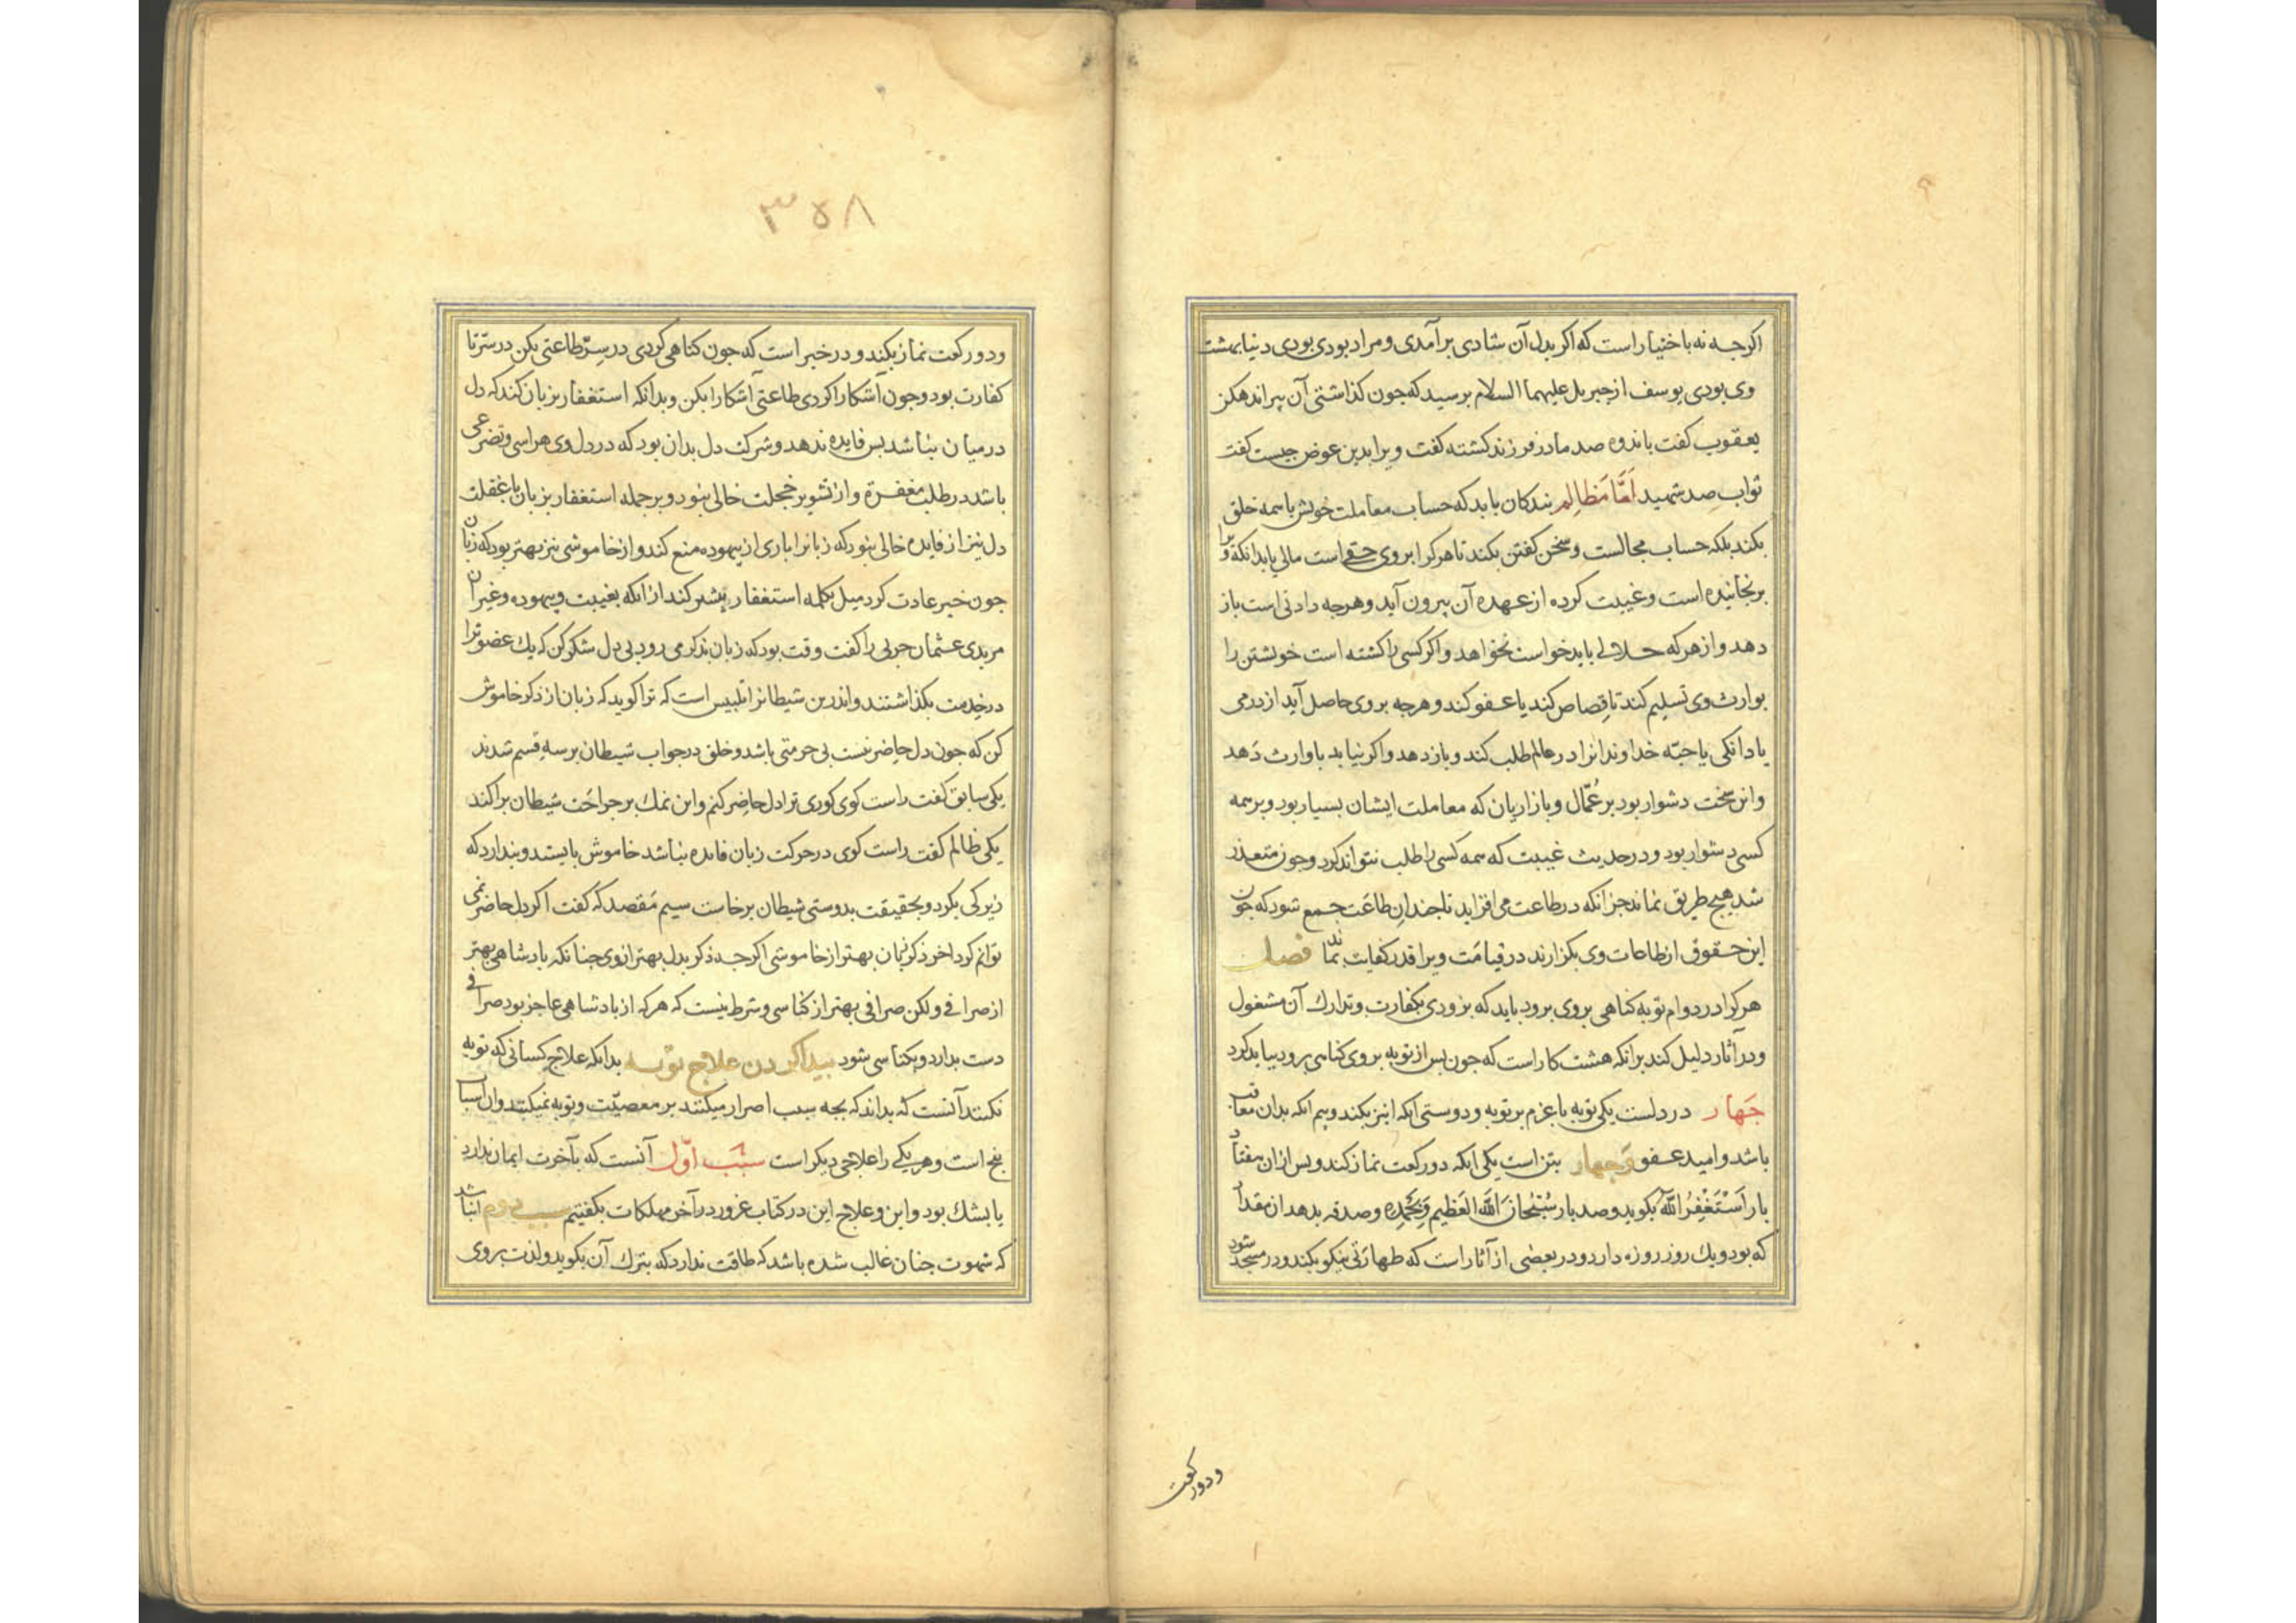 اکرجه نه باختیاراست که اکر بدل آن شادی برآمدی ومراد بودی بودی دنیا بهشت
وی بودی یوسف ازجبریل علیهما السلام برسید که جون کذاشتی آن پیر اندهکن
یعقوب کفت باندوه صد مادر فرزند کشته کفت ویرا بدین عوض جیست کفت
ثواب صد شهید اَمّا مَظالِم بندکان باید که حساب معاملت خویش باهمه خلق
بکند بلکه حساب مجالست وسخن کفتن بکند تا هرکرا بروی حقی است مالی یا بدانکه ویرا
برنجانیده است وغیبت کرده ازعهده آن بیرون آید وهرجه دادنی است باز
دهد وازهرکه حلالی باید خواست بخواهد واکر کسی را کشته است خویشتن را
بوارث وی تسلیم کند تا قصاص کند یا عفو کند وهرجه بروی حاصل آید ازدرمی
یا دانکی یا حبّه خداوندانرا در عالم طلب کند وبازدهد واکر نیابد باوارث دَهد
واین سخت دشوار بود بر عُمّال وبازاریان که معاملت ایشان بسیار بود وبرهمه
کسی دشوار بود ودرحدیث غیبت که همه کسی را طلب نتواند کرد وجون متعذر
شد هیچ طریق نماند جزانکه درطاعت می افزاید تا جندان طاعَت جمع شود که جون
این حقوق ازطاعات وی بکزارند درقیامَت ویرا قدر کفایت نماند فصل
هرکرا در دوام توبه کناهی بروی برود باید که بزودی بکفارت وتدارك آن مشغول
ودر آثار دلیل کند برانکه هشت کاراست که جون بس ازتوبه بروی کناهی برود بباید کرد
جَهار دردلست یکی توبه یا عزم بر توبه ودوستی انکه نیز نکند وبیم انکه بدان معاقب
باشد وامید عفو وَجهار بتن است یکی انکه دورکعت نماز کند وبس ازان هفتاد
بار اَسْتَغْفِرُاللّه بکوید وصد بار سُبْحانَ اللّه العَظیم وَبِحَمْدِه وصدقه بدهد ان مقدار
که بود ویك روز روزه دارد ودر بعضی از آثار است که طهارتی نیکو بکند ودر مسجد شود
ودورکعت
۳۵۸
ودورکعت نماز بکند ودرخبر است که جون کناهی کردی درسِرّ طاعتی بکن درسّر تا
کفارت بود وجون آشکارا کردی طاعتی آشکارا بکن وبدانکه استغفار بزبان کند که دل
درمیان نباشد بس فایده ندهد وشرکت دل بدان بود که دردل وی هراسی وتضرعی
باشد درطلب مغفرة واز تشویر خجلت خالی نبود وبرجمله استغفار بزبان با غفلت
دل نیز از فایده خالی نبود که زبانرا باری از بیهوده منع کند واز خاموشی نیز بهتر بود که زبان
جون خبر عادت کرد میل بکلمه استغفار بیشتر کند ازانکه بغیبت وبیهوده وغیر ان
مریدی عثمان حربی را کفت وقت بود که زبان بذکر می رود بی دل شکر کن که یك عضو ترا
درخدمت بکذاشتند واندرین شیطانرا تلبیس است که ترا کوید که زبان از ذکر خاموش
کن که جون دل حاضر نیست بی حرمتی باشد وخلق درجواب شیطان برسه قسم شدند
یکی سابق کفت راست کوی کوری ترا دل حاضر کنم واین نمك بر جراحَت شیطان براکند
یکی ظالم کفت راست کوی درحرکت زبان فایده نباشد خاموش بایستد وبندارد که
زیرکی بکرد وبحقیقت بدوستی شیطان برخاست سیم مَقصد که کفت اکر دل حاضر نمی
توانم کرد اخر ذکر زبان بهتر از خاموشی اکرجه ذکر بدل بهتر ازوی جنانکه بادشاهی بهتر
از صرافی ولکن صرافی بهتر از کناسی وشرط نیست که هرکه از بادشاهی عاجز بود صرافی
دست بدارد وبکناسی شود بیدا کردن علاج توبه بدانکه علاج کسانی که توبه
نکنند آنست که بداند که بجه سبب اصرار میکنند بر معصیّت وتوبه نمیکنند وان اسباب
بنج است وهریکی را علاجی دیکر است سَبَب اوّل آنست که بآخرت ایمان ندارد
یا بشك بود واین وعلاج این درکتاب غرور درآخر مهلکات بکفتیم سبب دوم انباشد
که شهوت جنان غالب شده باشد که طاقت ندارد که بترك آن بکوید ولذت بروی